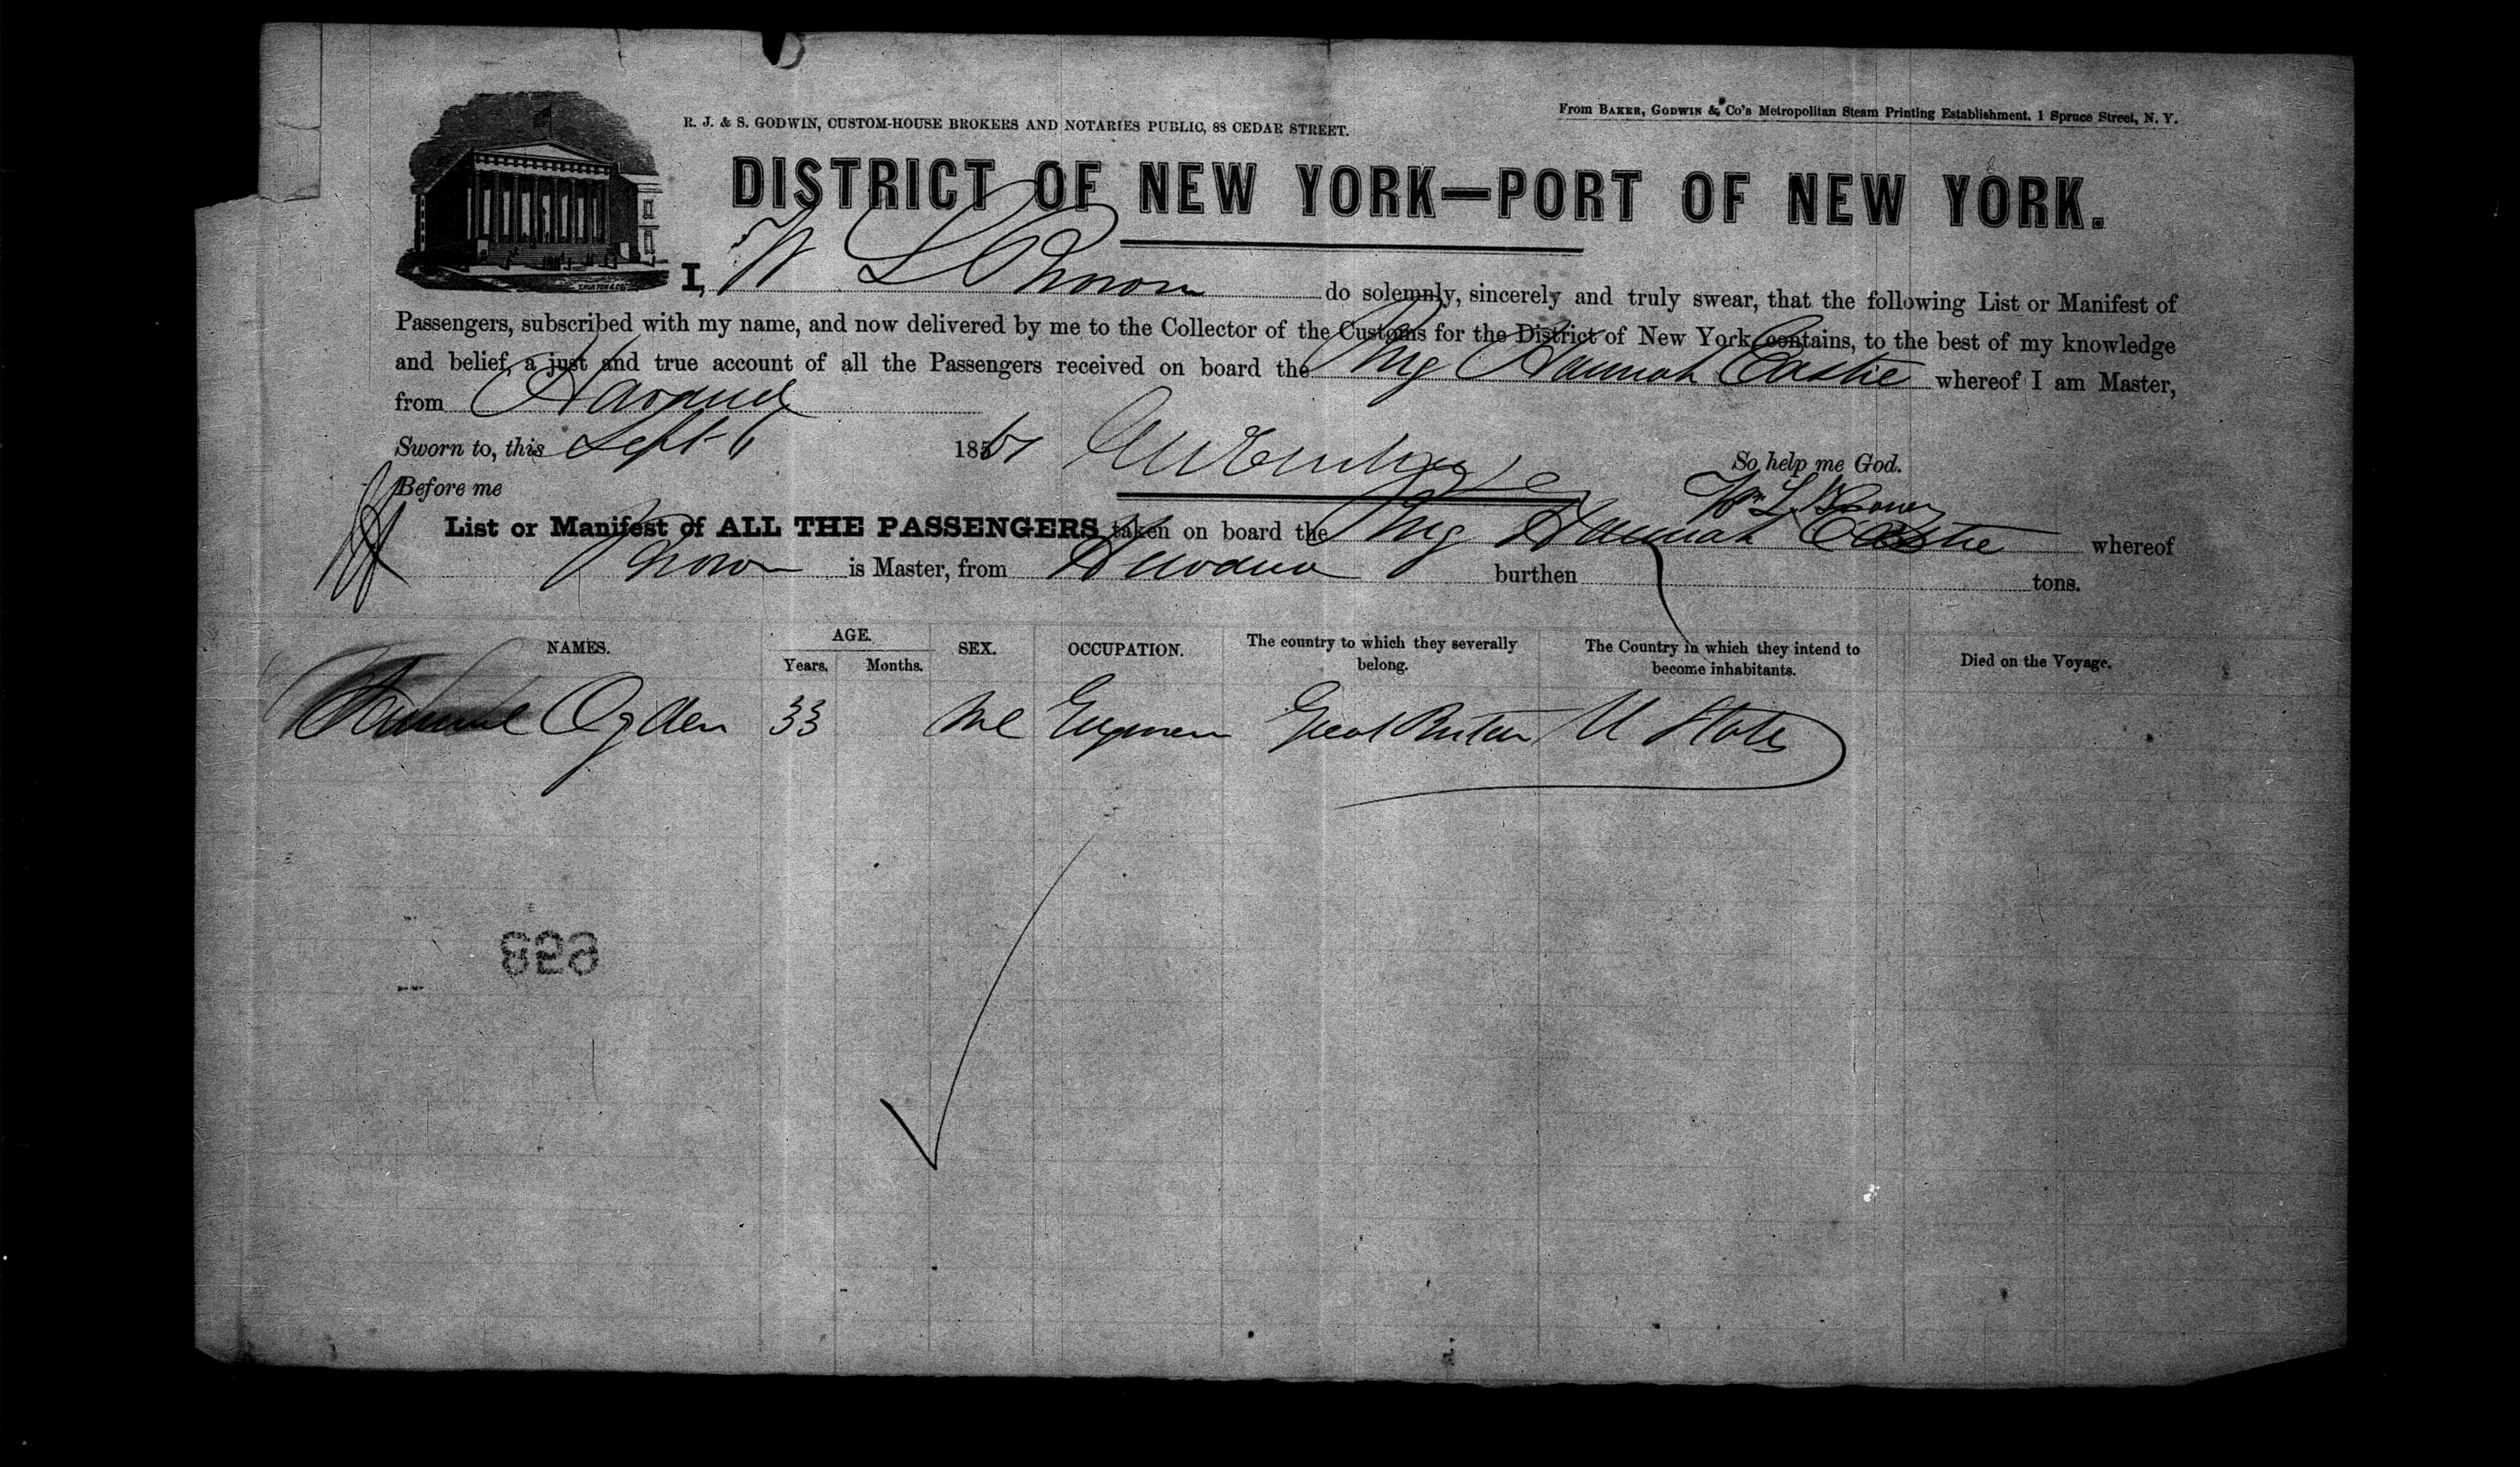 R. J. & S. GODWIN, CUSTOM-HOUSE BROKERS AND NOTARIES PUBLIC, 88 CEDAR STREET.
From BAKER, GODWIN & Co's Metropolitan Steam Printing Establishment, 1 Spruce Street, N. Y.
DISTRICT OF NEW YORK—PORT OF NEW YORK.
I, W L Brown do solemnly, sincerely and truly swear, that the following List or Manifest of
Passengers, subscribed with my name, and now delivered by me to the Collector of the Customs for the District of New York, contains, to the best of my knowledge
and belief, a just and true account of all the Passengers received on board the Brig Hannah Eastie whereof I am Master,
from Havana
Sworn to, this Sept 6 185
So help me God.
Before me
Wm L. Brown
List or Manifest of ALL THE PASSENGERS taken on board the Brig Hannah Eastie whereof
Brown is Master, from Havana burthen tons.
NAMES. AGE. SEX. OCCUPATION. The country to which they severally belong. The Country in which they intend to become inhabitants. Died on the Voyage.
Years. Months.
Ogden 33 Ml Great Britain U States
628